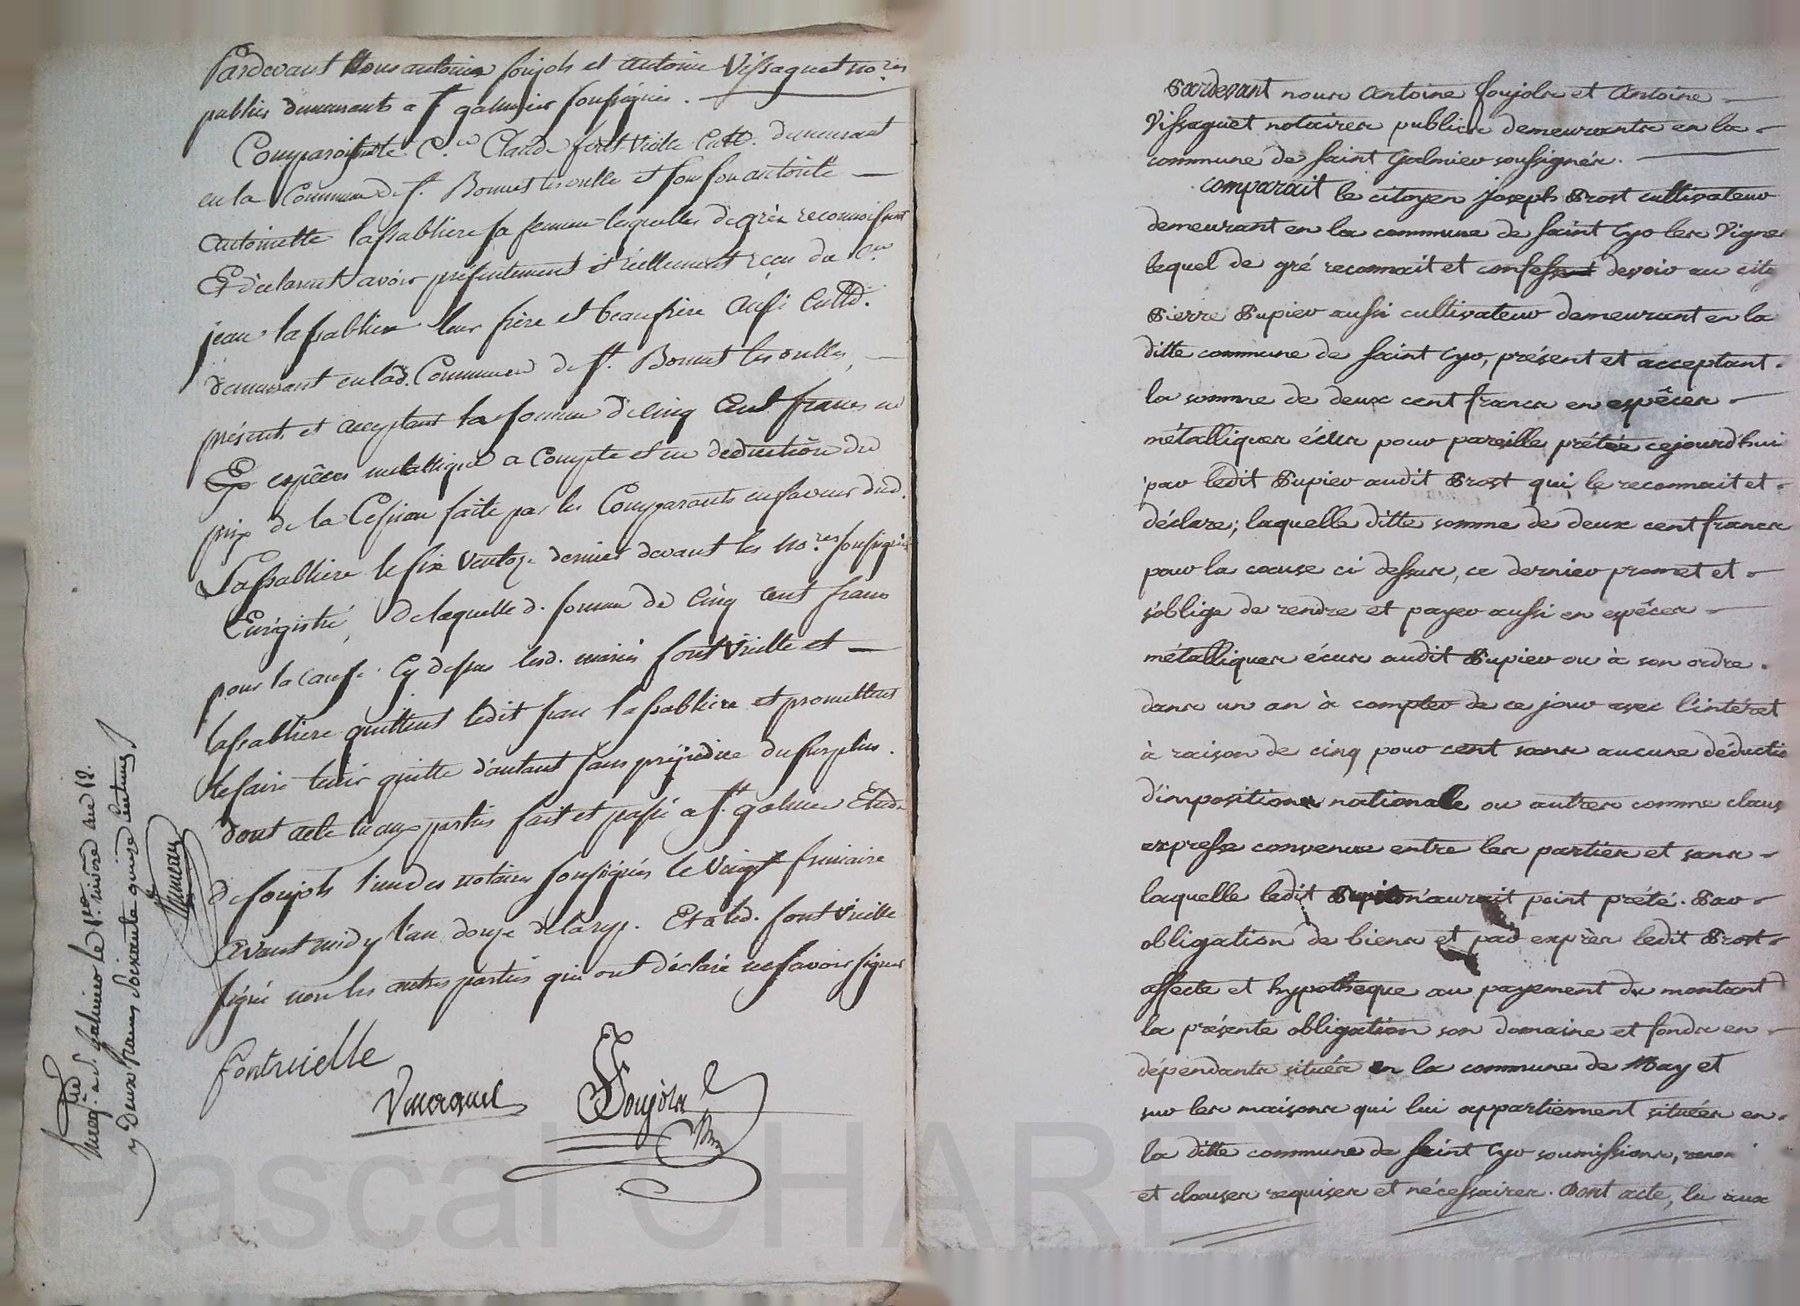 Pardevant Nous antoine soujols et antoine Vissaguet no.res
publics demeurants a St. galmier soussignés.
Comparoissent le C.en Claude fontvielle Cult. demeurant
en la Commune de St. Bonnet les oulles et sous son autorité
antoinette lassabliere sa femme lesquelles de grés reconnoissent
Et déclarent avoir présentement et réellement reçu du C.en
jean lassabliere leur frère et beaufrère aussi Cultd.
demeurant en lad. Commune de St. Bonnet les oulles,
présent et acceptant la somme de cinq Cent francs en
espèces metallique a Compte et en deduction du
prix de la Cession faite par les Comparants en faveur dud.
Lassabliere le six Ventoze dernier devant les no.res soussignés
Enrégistré, de laquelle d. somme de Cinq Cent francs
pour la cause Cy dessus lesd. mariés fontvielle et
lassabliere quittent ledit jean lassabliere et promettent
le faire tenir quitte d'autant sans préjudice du surplus.
dont acte lu aux parties fait et passé a St. galmier Etude
de soujols l'un des notaires soussignés le Vingt frimaire
avant midy l'an douze de la rep. Et a led. fontvielle
signé non les autres parties qui ont déclaré ne savoir signer
fontvielle
Vissaguet
Soujols
Enreg.tré a St. Galmier le 1er nivose an 12.
Deux francs soixante quinze centimes
Pardevant nous Antoine Soujols et Antoine
Vissaguet notaires publics demeurants en la
commune de saint Galmier soussignés.
comparait le citoyen joseph Brost cultivateur
demeurant en la commune de saint Cyr les Vignes
lequel de gré reconnait et confesse devoir au cito
Pierre Dupier aussi cultivateur demeurant en la
ditte commune de saint Cyr, présent et acceptant.
la somme de deux cent francs en espêces
métalliques écus pour pareille prétée cejourd'hui
par ledit Dupier audit Brost qui le reconnait et
déclare; laquelle ditte somme de deux cent francs
pour la cause ci dessus, ce dernier promet et
s'oblige de rendre et payer aussi en espêces
métalliques écus audit Dupier ou à son ordre.
dans un an à compter de ce jour avec l'intéret
à raison de cinq pour cent sans aucune déductio
d'impositions nationale ou autres comme claus
expresse convenue entre les parties et sans
laquelle ledit Dupier n'aurait point prété. Par
obligation de biens et par exprès ledit Brost
affecte et hypotheque au payement du montant
la présente obligation son domaine et fonds en
dépendants situés en la commune de May et
sur les maisons qui lui appartiennent situées en
la ditte commune de saint Cyr soumissions,
et clauses requises et nécessaires. Dont acte, lu aux
Pascal CHAREYRON